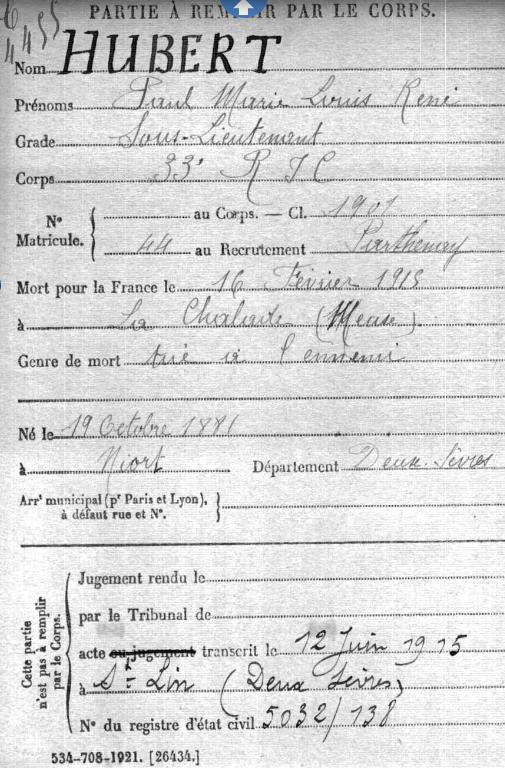 4455
PARTIE À REMPLIR PAR LE CORPS.
Nom HUBERT
Prénoms Paul Marie Louis René
Grade Sous-Lieutenant
Corps 33e R I C
N° Matricule. { au Corps. — Cl. 1901
44 au Recrutement Parthenay
Mort pour la France le 16 Février 1915
à La Chalade (Meuse)
Genre de mort tué à l'ennemi
Né le 19 Octobre 1881
à Niort Département Deux-Sèvres
Arrt municipal (pr Paris et Lyon), à défaut rue et N°. }
Cette partie n'est pas à remplir par le Corps.
Jugement rendu le
par le Tribunal de
acte ou jugement transcrit le 12 Juin 1915
à St Lin (Deux Sèvres)
N° du registre d'état civil 5032/138
534-708-1921. [26434.]